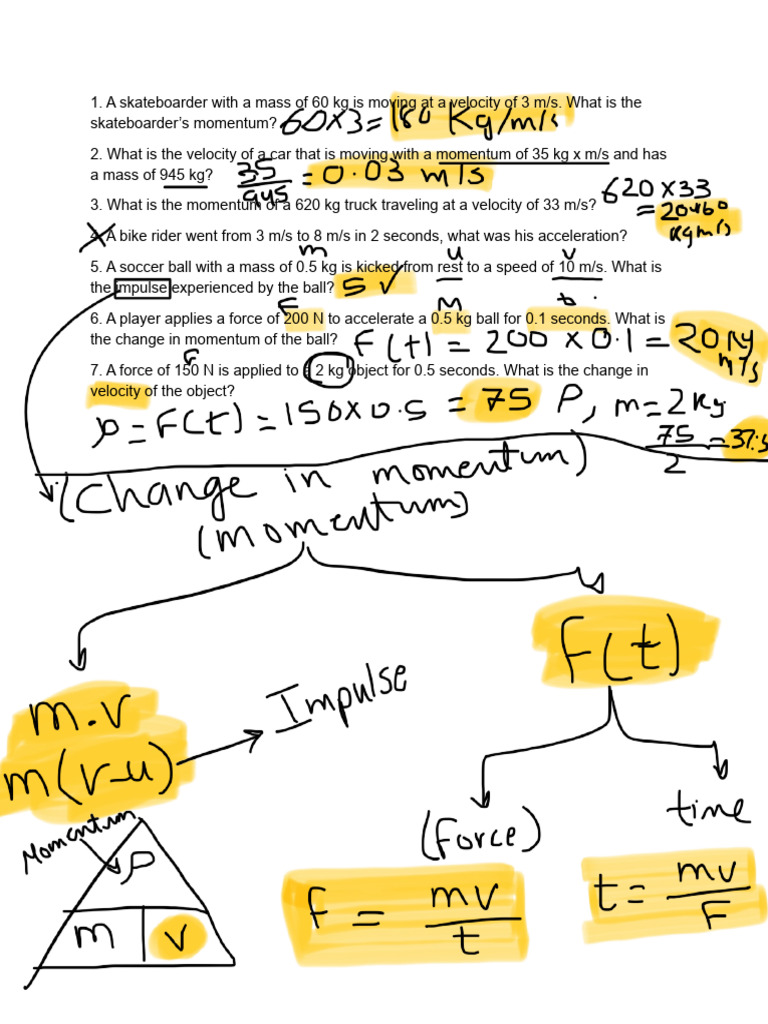 1. A skateboarder with a mass of 60 kg is moving at a velocity of 3 m/s. What is the
skateboarder's momentum? 60×3=180 Kg/m/s
2. What is the velocity of a car that is moving with a momentum of 35 kg x m/s and has
a mass of 945 kg? 35/945 = 0.03 m/s
620×33
3. What is the momentum of a 620 kg truck traveling at a velocity of 33 m/s?
= 20460
kg m/s
4. A bike rider went from 3 m/s to 8 m/s in 2 seconds, what was his acceleration?
m u v
5. A soccer ball with a mass of 0.5 kg is kicked from rest to a speed of 10 m/s. What is
the impulse experienced by the ball? 5 ✓
F M t
6. A player applies a force of 200 N to accelerate a 0.5 kg ball for 0.1 seconds. What is
the change in momentum of the ball? F(t) = 200 × 0.1 = 20
m/s
F
7. A force of 150 N is applied to a 2 kg object for 0.5 seconds. What is the change in
velocity of the object?
p = F(t) = 150×0.5 = 75 P, m=2kg
75/2 = 37.5
(Change in momentum)
(momentum)
F(t)
m.v
m(v-u)
Impulse
(Force)
time
Momentum
P
m v
F = mv/t
t = mv/F